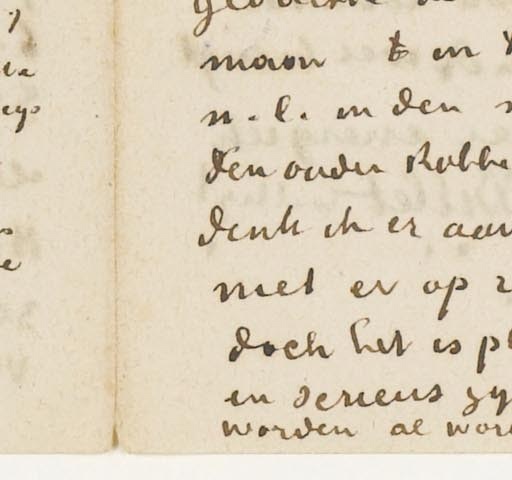 maar & in
n.l. in den
den ouden Robbe
denk ik er aan
met er op
doch het is pl
en serieus zy
worden al wor